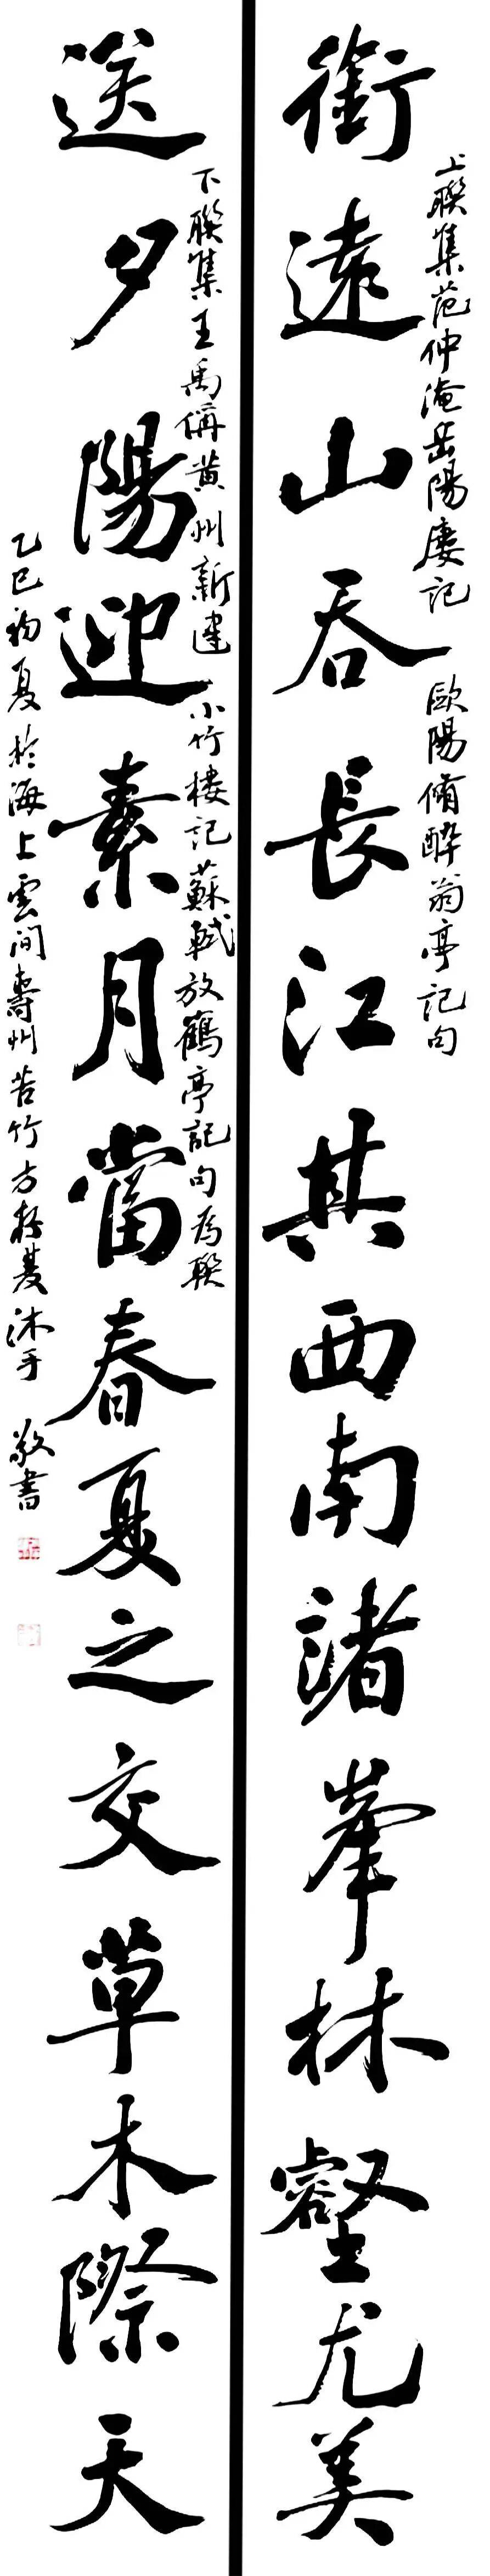 上聯集范仲淹岳陽廔記 歐陽脩醉翁亭記句
銜遠山吞長江其西南諸峯林壑尤美
下聯集王禹偁黃州新建小竹樓記蘇軾放鶴亭記句為聯
送夕陽迎素月當春夏之交草木際天
乙巳初夏於海上雲間壽州苦竹方 沐手敬書